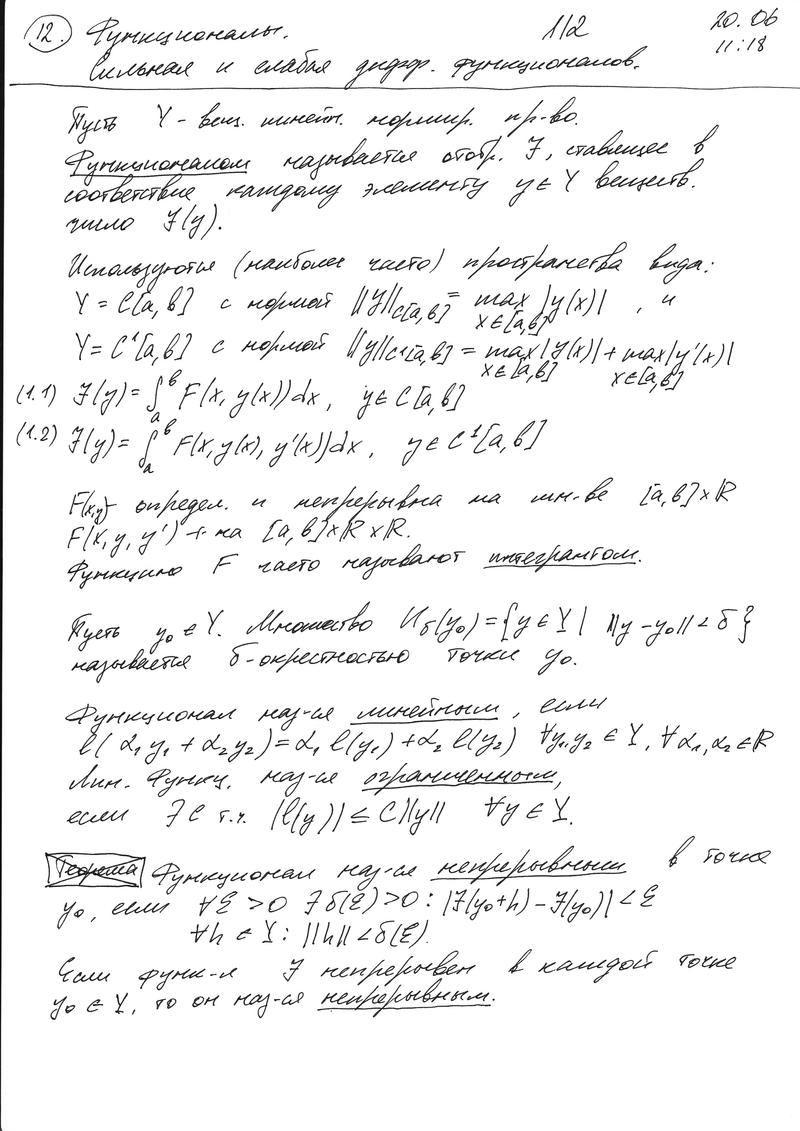 12. Функционалы. 1/2 20.06
Сильная и слабая дифф. функционалов. 11:18
Пусть Y - вещ. линейн. нормир. пр-во.
Функционалом называется отобр. J, ставящее в
соответствие каждому элементу y ∈ Y веществ.
число J(y).
Используются (наиболее часто) пространства вида:
Y = C[a,b] с нормой ||y||_C[a,b] = max_{x∈[a,b]} |y(x)| , и
Y = C¹[a,b] с нормой ||y||_C¹[a,b] = max_{x∈[a,b]} |y(x)| + max_{x∈[a,b]} |y'(x)|
(1.1) J(y) = ∫_a^b F(x, y(x)) dx, y ∈ C[a,b]
(1.2) J(y) = ∫_a^b F(x, y(x), y'(x)) dx, y ∈ C¹[a,b]
F(x,y) - определ. и непрерывна на мн-ве [a,b]×ℝ
F(x, y, y') -"- на [a,b]×ℝ×ℝ.
Функцию F часто называют интегрантом.
Пусть y₀ ∈ Y. Множество U_δ(y₀) = {y ∈ Y | ||y - y₀|| < δ}
называется δ-окрестностью точки y₀.
Функционал наз-ся линейным, если
l(α₁y₁ + α₂y₂) = α₁ l(y₁) + α₂ l(y₂) ∀y₁,y₂ ∈ Y, ∀α₁,α₂ ∈ ℝ
Лин. функц. наз-ся ограниченным,
если ∃ C т.ч. |l(y)| ≤ C||y|| ∀y ∈ Y.
Теорема Функционал наз-ся непрерывным в точке
y₀, если ∀ε > 0 ∃ δ(ε) > 0 : |J(y₀+h) - J(y₀)| < ε
∀h ∈ Y : ||h|| < δ(ε).
Если функ-л J непрерывен в каждой точке
y₀ ∈ Y, то он наз-ся непрерывным.